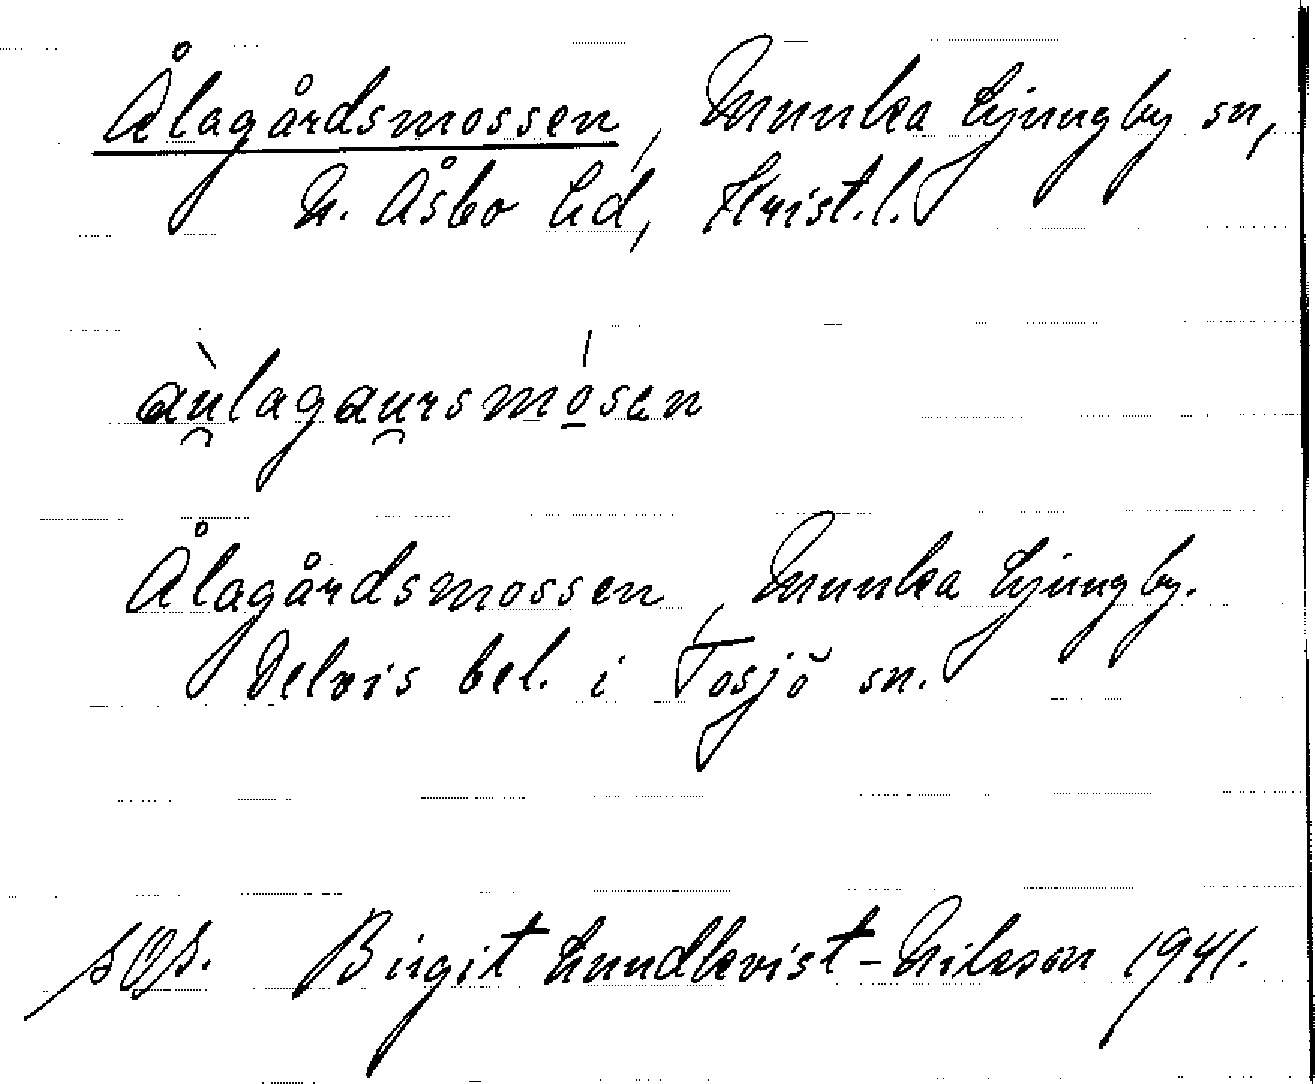 Ålagårdsmossen, Munka Ljungby sn,
N. Åsbo hd, Krist.l.
aù̯lagau̯rsmó̱sen
Ålagårdsmossen, Munka Ljungby.
Delvis bel. i Tosjö sn.
Birgit Lundkvist-Nilsson 1941.